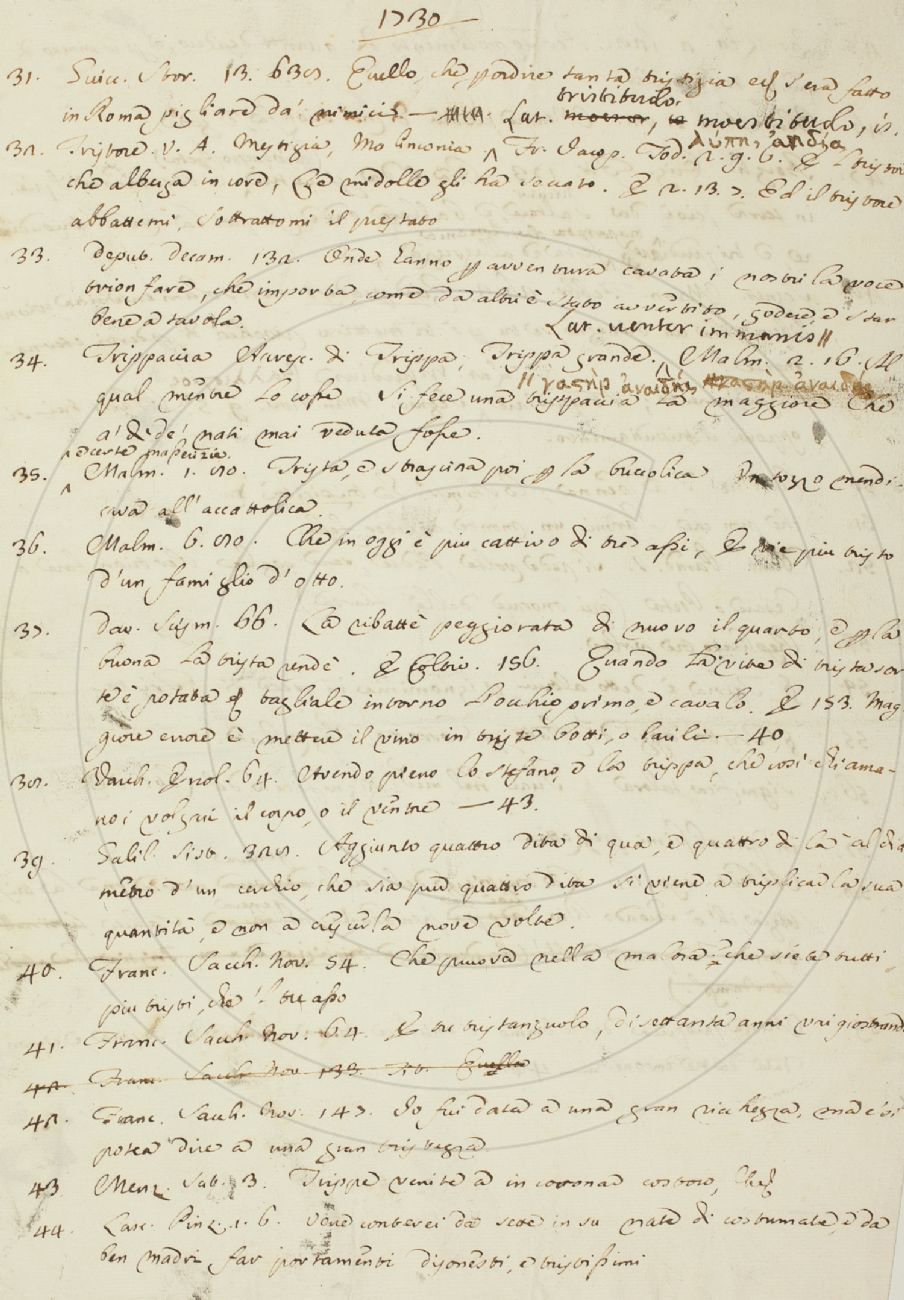 1730
31. Guicc. Stor. 13. 638. Quello, che p ordire tanta tristizia egli era fatto
tristitudo
in Roma pigliare da' nimici — Lat. moeror, moestitudo, is.
λύπης, ἀνδία
32. Tristore V. A. Mestizia, Malinconia ^ Fr. Jacop. Tod. 2. 9. 6. E 'l tristor
che alberga in core, Che midolle gli ha seccato. E 2. 13. 7. Ed il tristore
abbattemi, Sottrattomi il prestato
33. Deput. Decam. 132. Onde hanno p avventura cavata i nostri la voce
trionfare, che importa, come da altri è stato avvertito, godere e star
bene a tavola.
Lat. venter immanis ||
34. Trippaccia Accresc. di Trippa, Trippa grande. ^ Malm. 2. 16. Al
|| γαστὴρ ἀναιδής γαστὴρ ἀναιδής
qual mentre lo cosse Si fece una trippaccia la maggiore Che
a' dì de' nati mai veduta fosse.
e certe masserizie
35. ^ Malm. 1. 80. Trista, e strascina poi p la buccolica In tozzo mendi-
cava all' accattolica.
36. Malm. 6. 80. Che in oggi è piu cattivo di tre assi, E vie piu tristo
d'un famiglio d'otto.
37. Dav. Scism. 66. La ribattè peggiorata di nuovo il quarto, e p la
buona la trista rendè. E Coltiv. 156. Quando la vite di trista sor
te è potata tagliale intorno l'occhio primo, e cavalo. E 153. Mag
giore errore è mettere il vino in triste botti, o barili. — 40
38. Varch. Ercol. 64. Avendo pieno lo stefano, e la trippa, che così chiama-
no i volgari il corpo, o il ventre — 43.
39. Galil. Sist. 328. Aggiunto quattro dita di qua, e quattro di là al dia
metro d'un cerchio, che sia pure quattro dita si viene a triplicar la sua
quantità, e non a crescerla nove volte.
40. Franc. Sacch. Nov. 54. Che nella malora che siete tutti
piu tristi, che 'l tre asso
41. Franc. Sacch. Nov. 64. E tu tristanzuolo, di settanta anni vai giostrand
42. Franc. Sacch. Nov. 133. Quella
42. Franc. Sacch. Nov. 147. Io fui data a una gran ricchezza, ma e' si
potea dire a una gran tristezza
43 Menz. Sat. 3. Trippe venite a incoronar costoro, Che
44. Lasc. Pinz. 1. 6. conterei da sette in su nate di costumate, e da
ben madri far portamenti disonesti, e tristissimi